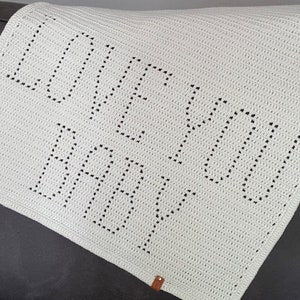 LOVE YOU
BABY